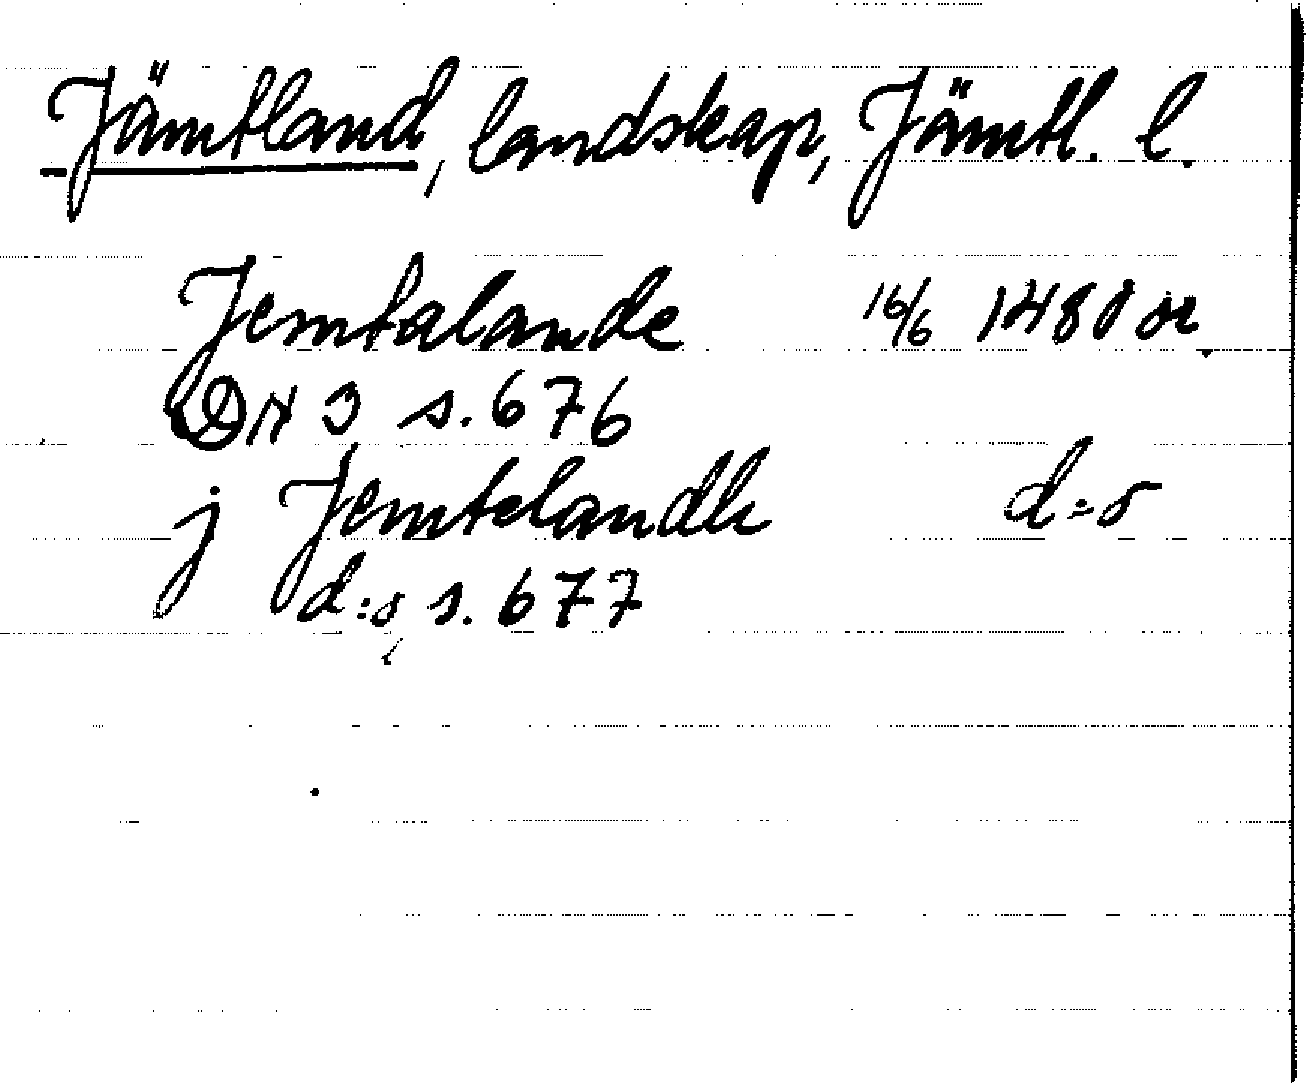 Jämtland, landskap, Jämtl. l.
Jemtalande 16/6 1480 or.
DN 3 s. 676
j Jemtelandh d:o
d:o s. 677